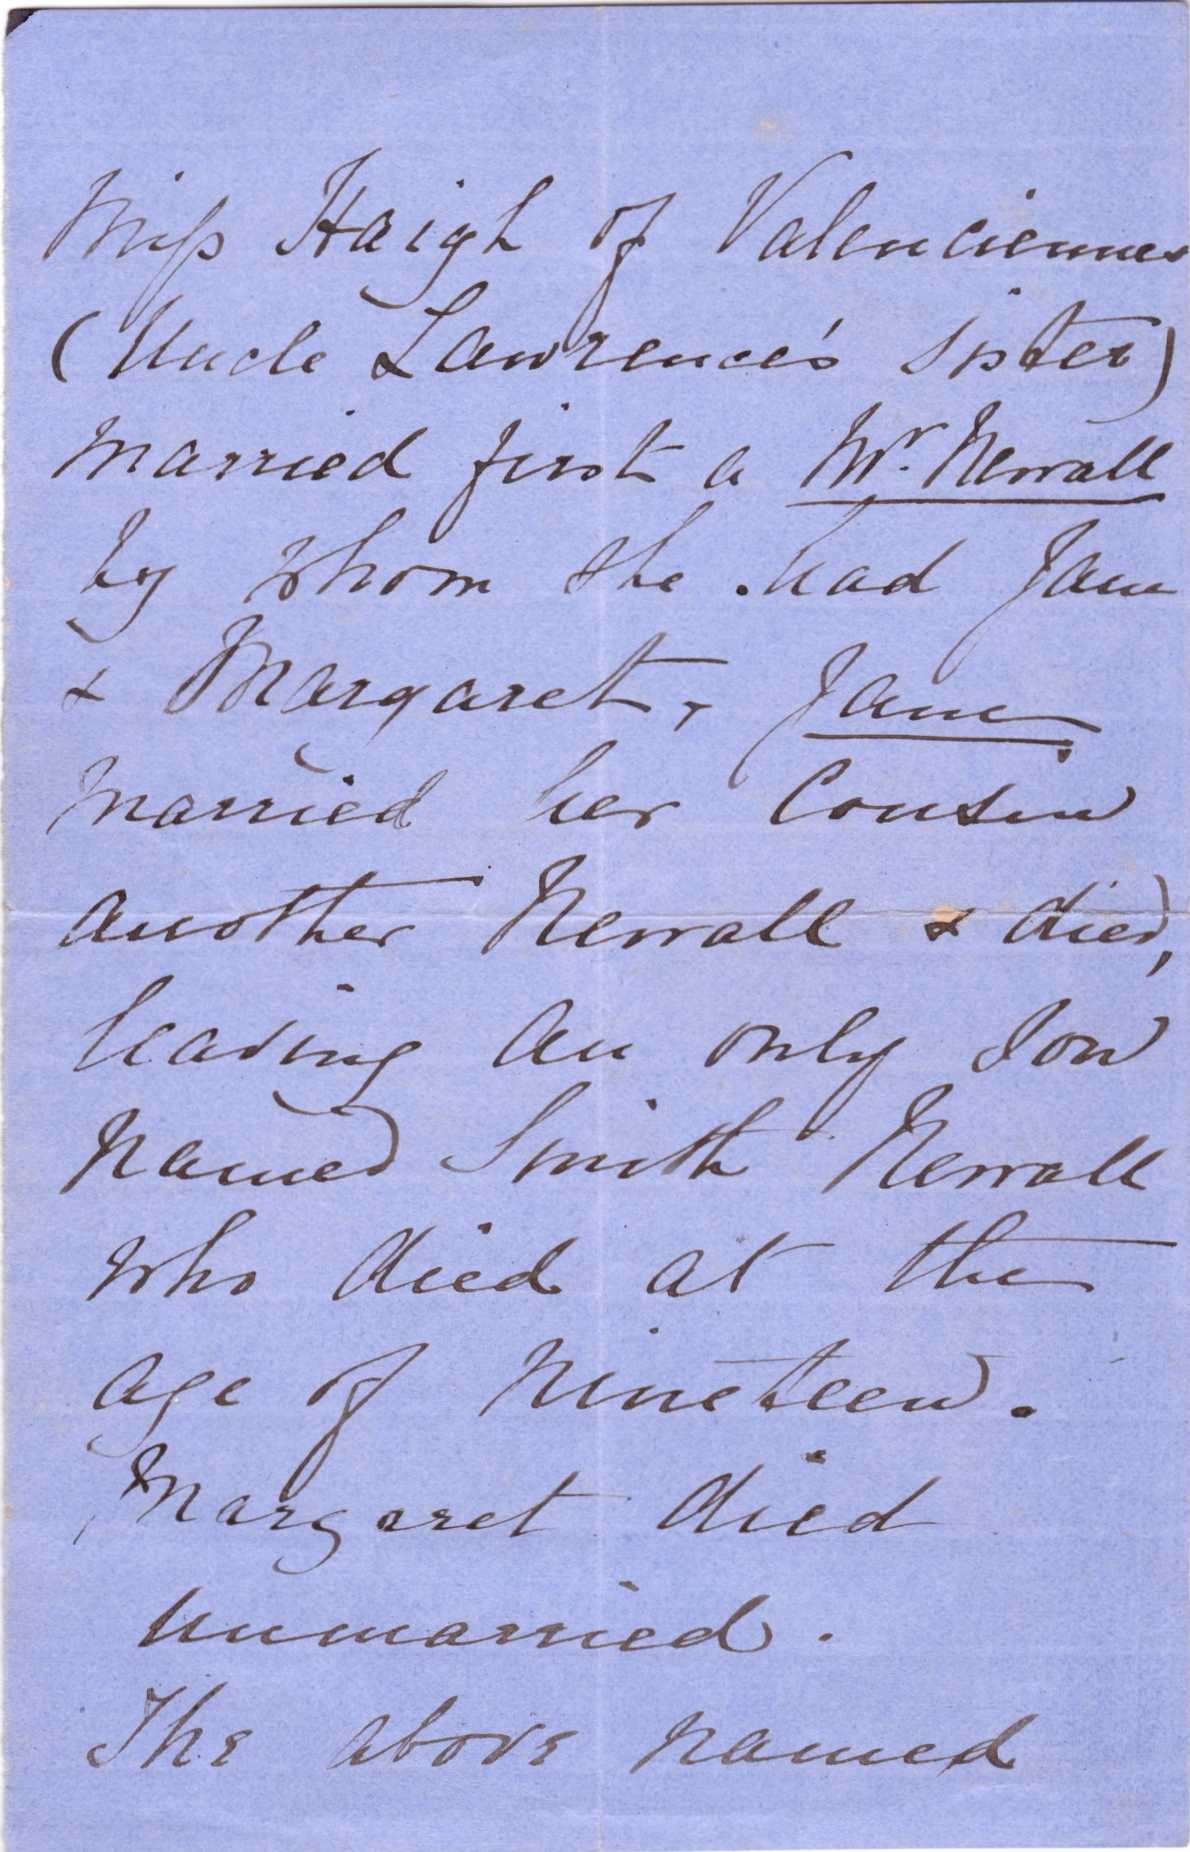 Miss Haigh of Valenciennes
(Uncle Lawrence's sister)
married first a Mr. Newall
by whom she had Jane
& Margaret, Jane
married her Cousin
another Newall & died,
leaving an only son
named Smith Newall
who died at the
age of nineteen.
Margaret died
unmarried.
The above named